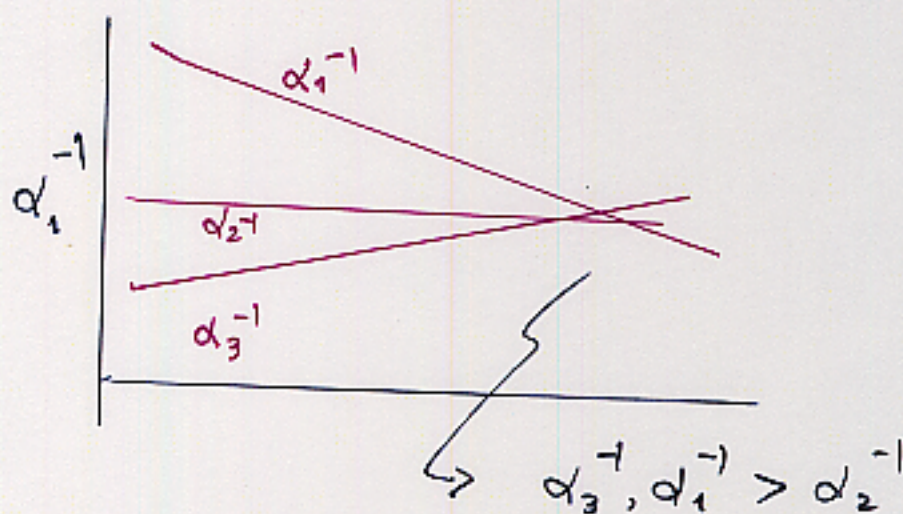 α₁⁻¹
α₁⁻¹
α₂⁻¹
α₃⁻¹
α₃⁻¹, α₁⁻¹ > α₂⁻¹